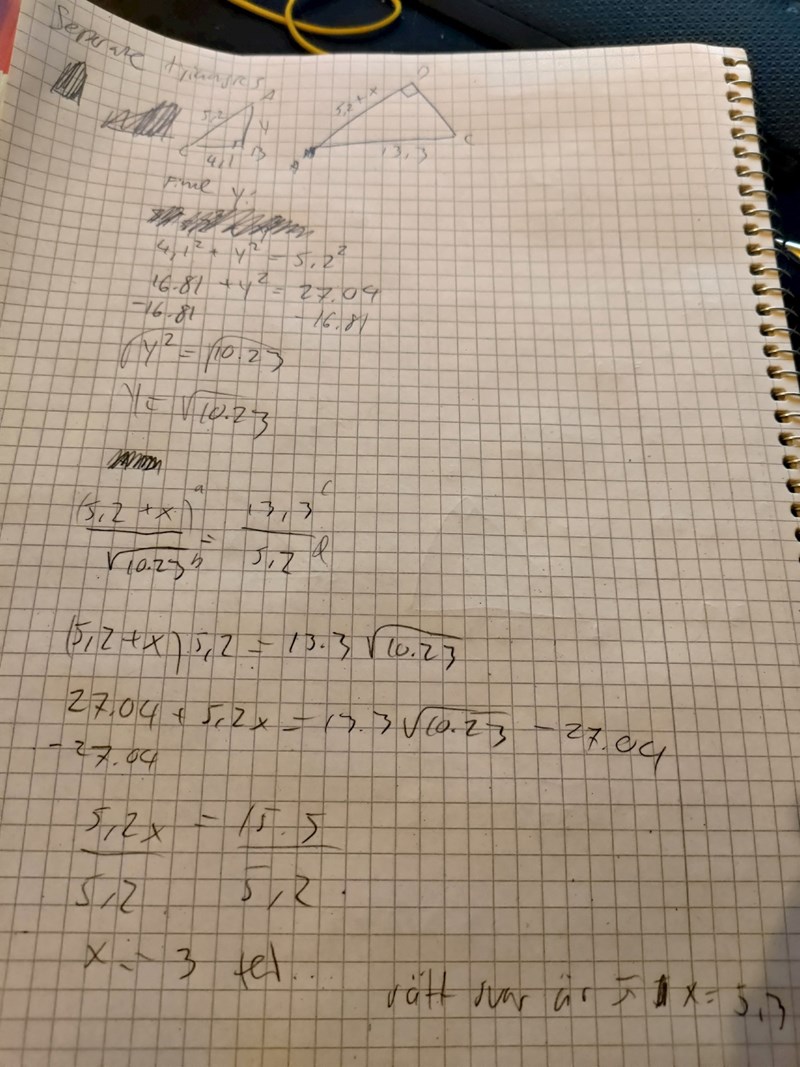 Separate triangles
5,2 A
y
C 4,1 B
5,2+x D
A 13,3 C
Find y:
4,1² + y² = 5,2²
16.81 + y² = 27.04
-16.81 -16.81
√y² = √10.23
y = √10.23
(5,2 + x) a = 13,3 c
√10.23 b 5,2 d
(5,2+x) 5,2 = 13.3 √10.23
27.04 + 5,2x = 13.3 √10.23 - 27.04
-27.04
5,2x = 15.5
5,2 5,2
x = 3 fel...
rätt svar är x = 5,3